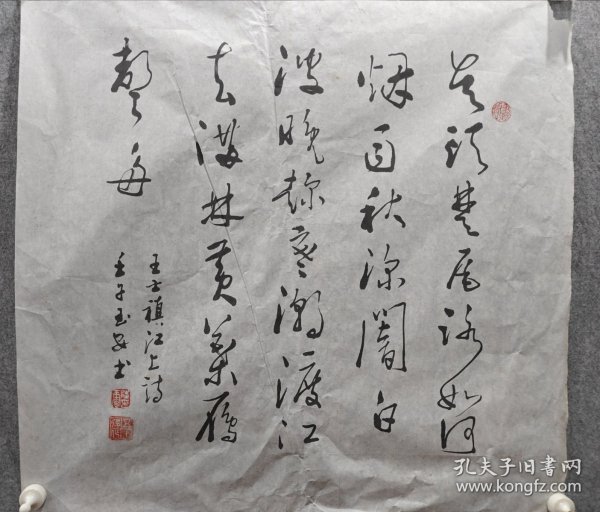 吴头楚尾路如何
烟雨秋深闇白
波晚趁寒潮渡江
去满林黄叶雁
声多
王士禛江上诗
壬子玉安书
孔夫子旧书网
www.kongfz.com